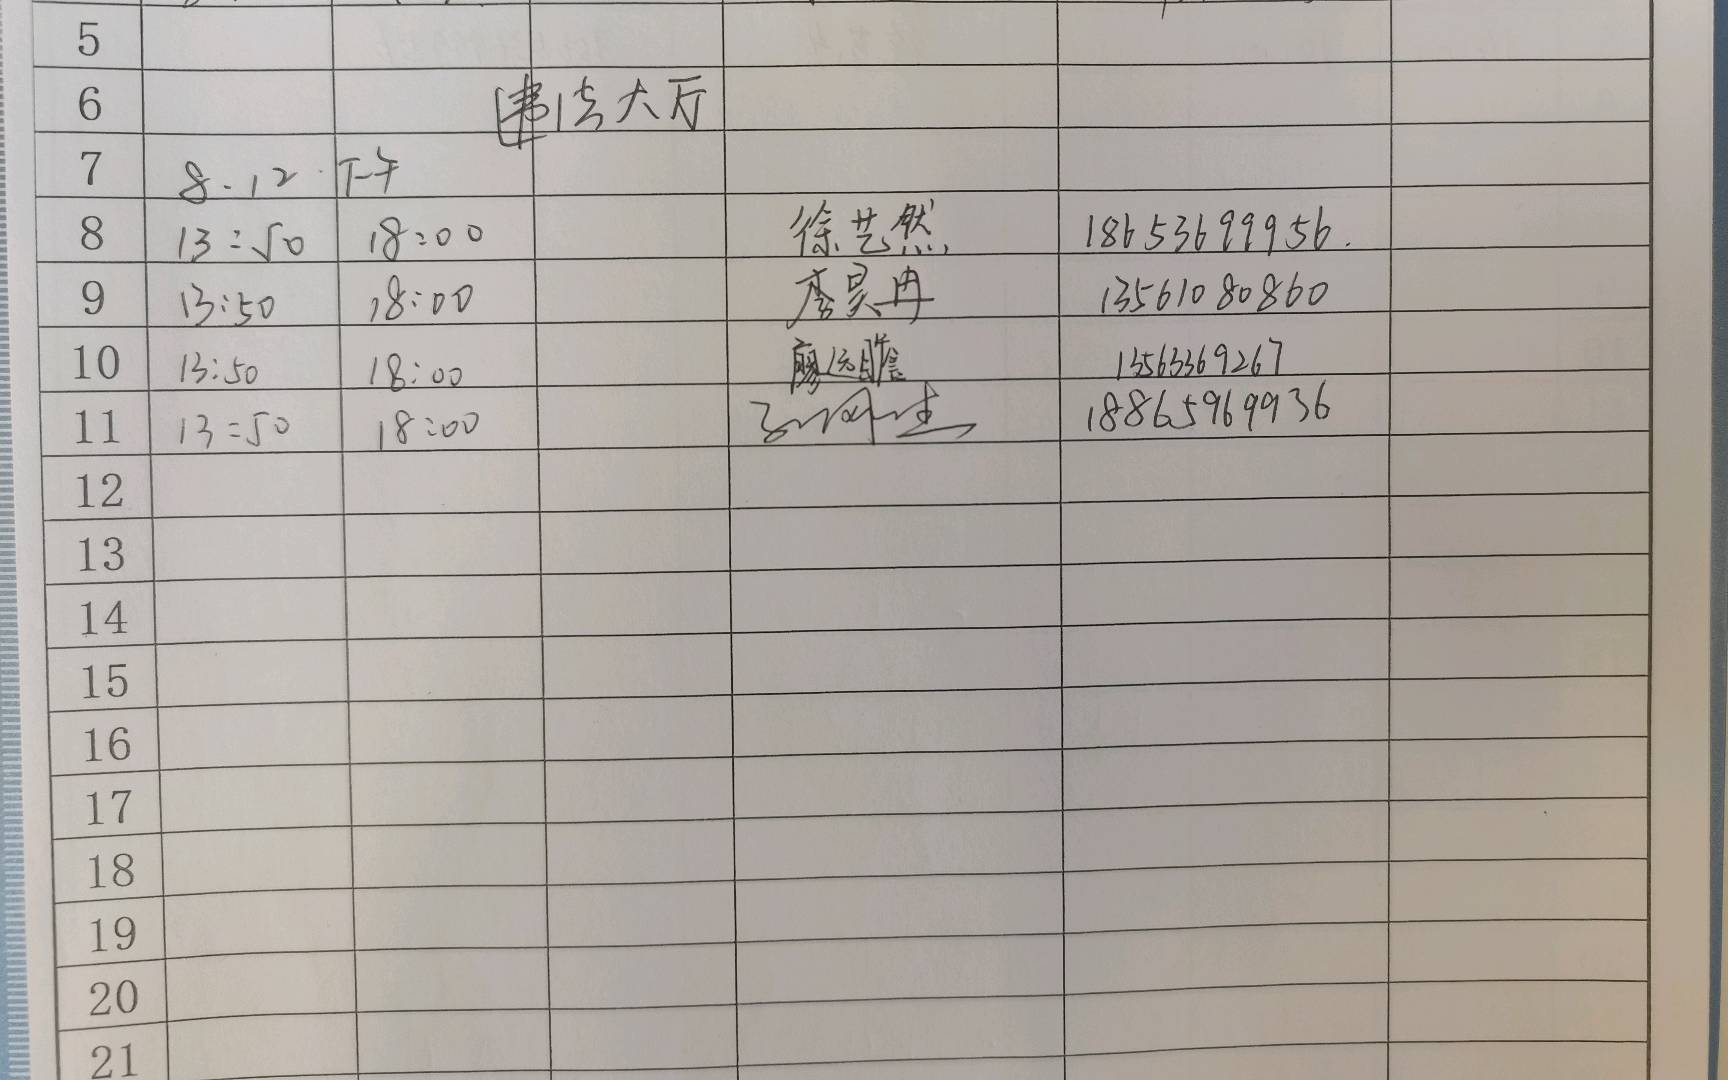 5
6 违法大厅
7 8.12 下午
8 13:50 18:00 徐艺然 18653699956.
9 13:50 18:00 李昊冉 13561080860
10 13:50 18:00 廖运瞻 13563369267
11 13:50 18:00 18865969936
12
13
14
15
16
17
18
19
20
21